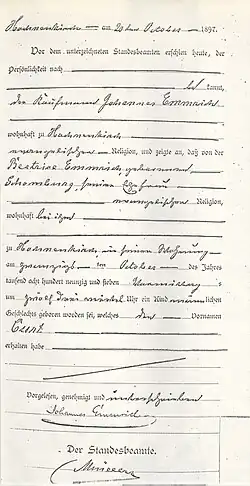 am 20ten October 1897.
Vor dem unterzeichneten Standesbeamten erschien heute, der
Persönlichkeit nach
kannt,
der Kaufmann Johannes Emmrich
wohnhaft zu
evangelischer Religion, und zeigte an, daß von der
Beatrice Emmrich geborenen
Schomburg seiner Ehefrau
evangelischer Religion,
wohnhaft bei ihm
zu in seiner Wohnung
am zwanzigsten October des Jahres
tausend acht hundert neunzig und sieben Vormittags
um zwölf drei viertel Uhr ein Kind männlichen
Geschlechts geboren worden sei, welches den Vornamen
Curt
erhalten habe
Vorgelesen, genehmigt und unterschrieben
Johannes Emmrich
Der Standesbeamte.